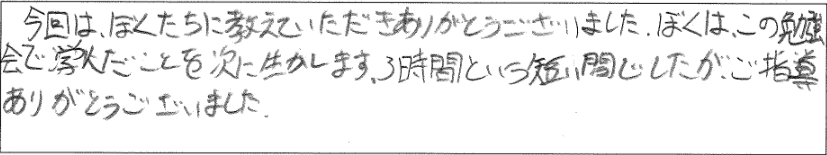 今回は、ぼくたちに教えていただきありがとうございました。ぼくは、この勉強
会で学んだことを次に生かします。3時間という短い間でしたが、ご指導
ありがとうございました。